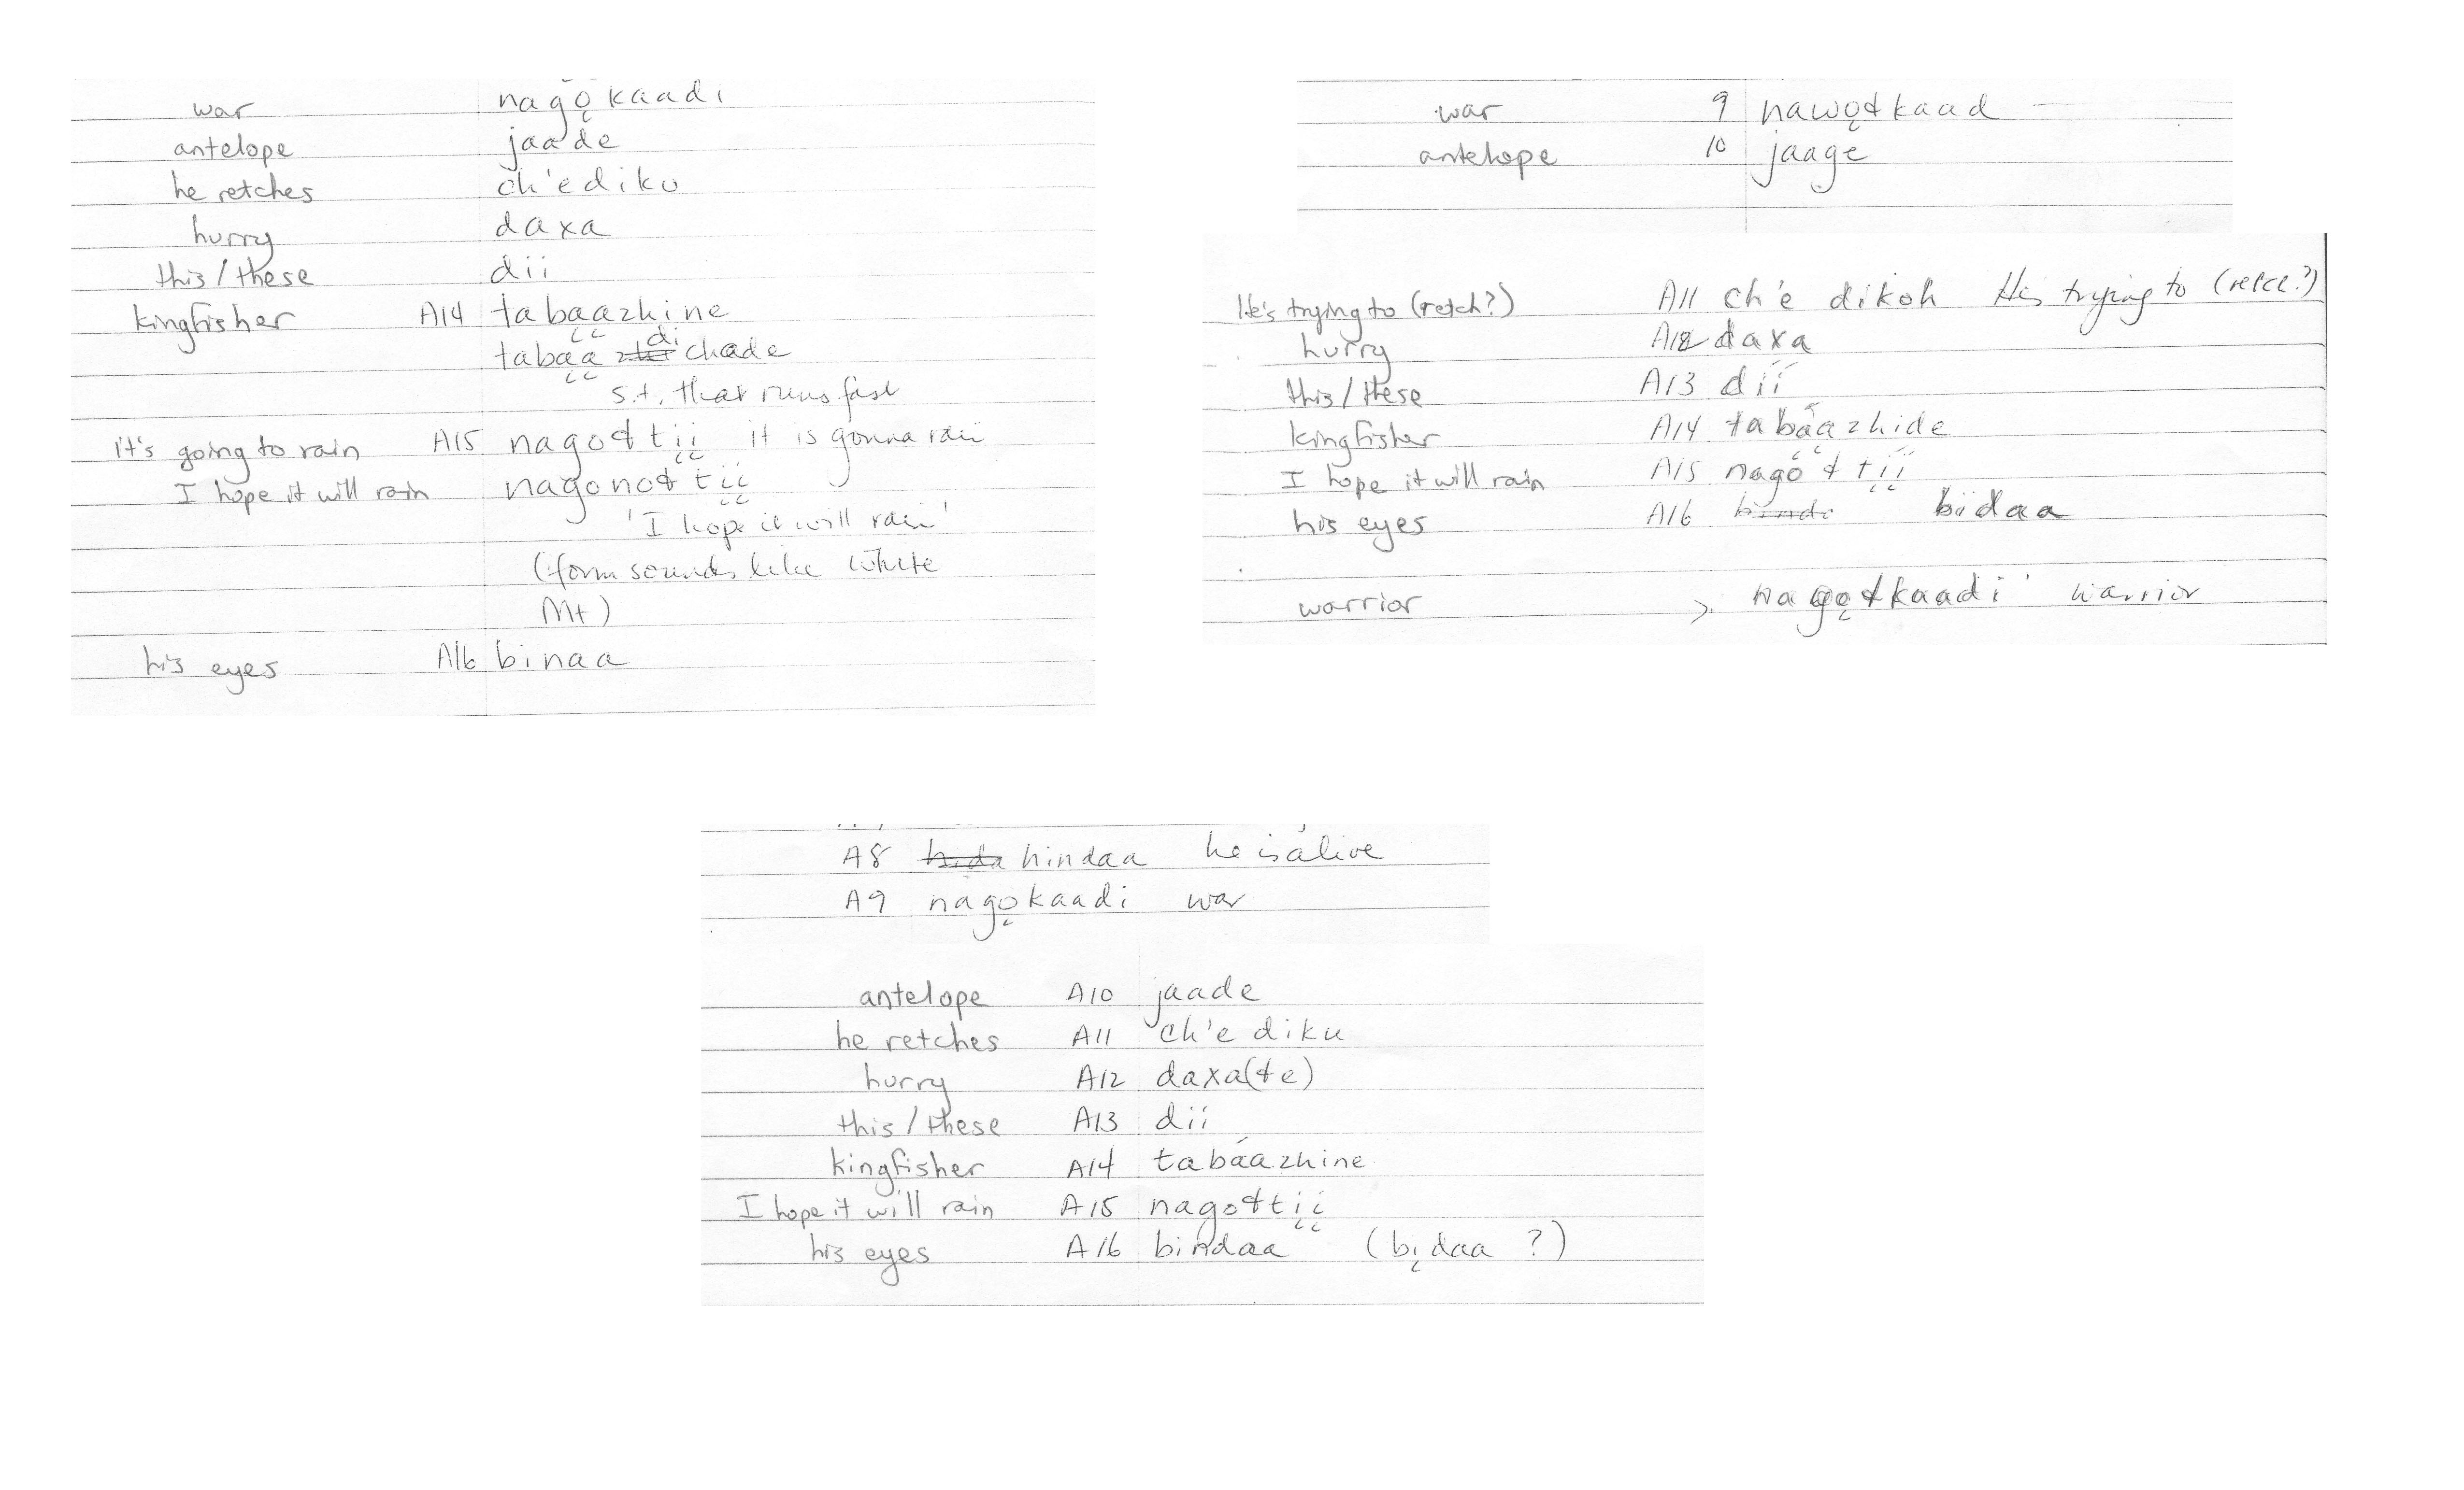 war nagǫ̆kaadi
antelope jaade
he retches ch'ediku
hurry daxa
this/these dii
kingfisher A14 tabą́ązhine
tabąą di chade
s.t. that runs fast
it's going to rain A15 nagołtį́į́ it is gonna rain
I hope it will rain nagonołtįį
'I hope it will rain'
(form sounds like White
Mt)
his eyes A16 binaa
war 9 nawǫłkaad —
antelope 10 jaage
He's trying to (retch?) A11 ch'e dikoh He's trying to (retch?)
hurry A12 daxa
this/these A13 díí
kingfisher A14 tabą́ązhide
I hope it will rain A15 nagółtį́į́
his eyes A16 bidaa
warrior > nagǫłkaadi' warrior
A8 hindaa he is alive
A9 nagǫkaadi war
antelope A10 jaade
he retches A11 ch'e diku
hurry A12 daxa(łe)
this/these A13 díí
kingfisher A14 tabáázhine
I hope it will rain A15 nagołtįį
his eyes A16 bindaa (bįdaa ?)